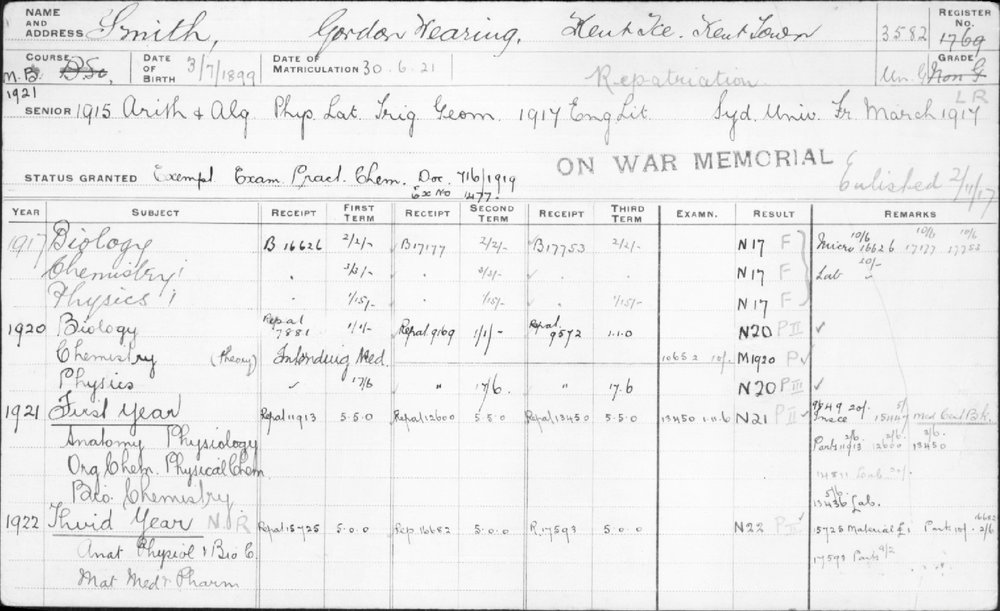 NAME AND ADDRESS Smith, Gordon Hearing, Kent Tce. Kent Town 3582 REGISTER No. 1769
COURSE B.Sc. M.B. 1921 DATE OF BIRTH 3/7/1899 DATE OF MATRICULATION 30.6.21 Repatriation GRADE Un. G Non G
L R
SENIOR 1915 Arith & Alg Phys. Lat. Trig Geom. 1917 Eng Lit. Syd. Univ. Fr. March 1917
ON WAR MEMORIAL
STATUS GRANTED Exempt Exam. Pract. Chem. Doc. 716/1919 Enlished 2/11/17
Ex No 1477
YEAR SUBJECT RECEIPT FIRST TERM RECEIPT SECOND TERM RECEIPT THIRD TERM EXAMN. RESULT REMARKS
1917 Biology B 16626 2/2/- B17177 2/2/- B17753 2/2/- N17 F Micro 10/6 16626 10/6 17177 10/6 17753
Chemistry 1 " 3/3/- 3/3/- N17 F Lab 20/-
Physics 1 " 1/15/- 1/15/- 1/15/- N17 F
1920 Biology Repat 7881 1/1/- Repat 9169 1/1/- Repat 9572 1.1.0 N20 P II ✓
Chemistry (theory) Intending Med. 10652 10/- M1920 P ✓
Physics ✓ 17/6 " 17/6. " 17.6 N20 P III ✓
1921 First Year Repat 11913 5.5.0 Repat 12600 5.5.0 Repat 13450 5.5.0 13450 1.0.6 N21 P II ✓ 9849 20/- 5/- 15447
Anatomy Physiology Parts 2/6 11913 2/6 12600 2/6 13450
Org Chem. Physical Chem. 20/-
Bio. Chemistry 5/6 13436 Lab.
1922 Third Year N.R Repat 15725 5.0.0 Rep 16682 5.0.0 R. 17593 5.0.0 N22 P III ✓ 15725 Material £1 Parts 10/- 16682 2/6
Anat Physiol & Bio C. 17593 Parts 9/2
Mat Med & Pharm